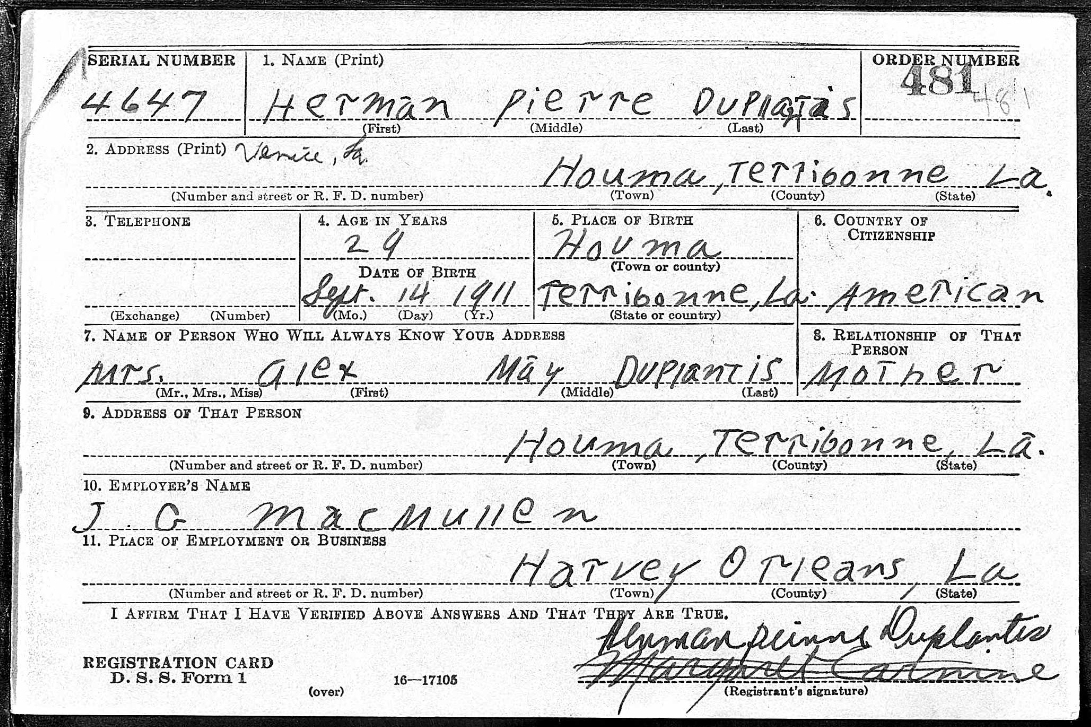 SERIAL NUMBER 1. NAME (Print) ORDER NUMBER
4647 Herman Pierre Duplantis 481 481
(First) (Middle) (Last)
2. ADDRESS (Print) Venice, La.
Houma, Terribonne La.
(Number and street or R. F. D. number) (Town) (County) (State)
3. TELEPHONE 4. AGE IN YEARS 5. PLACE OF BIRTH 6. COUNTRY OF CITIZENSHIP
29 Houma
(Town or county)
DATE OF BIRTH
Sept. 14 1911 Terribonne, La. American
(Exchange) (Number) (Mo.) (Day) (Yr.) (State or country)
7. NAME OF PERSON WHO WILL ALWAYS KNOW YOUR ADDRESS 8. RELATIONSHIP OF THAT PERSON
Mrs. Alex May Duplantis Mother
(Mr., Mrs., Miss) (First) (Middle) (Last)
9. ADDRESS OF THAT PERSON
Houma, Terribonne, La.
(Number and street or R. F. D. number) (Town) (County) (State)
10. EMPLOYER'S NAME
J. G MacMullen
11. PLACE OF EMPLOYMENT OR BUSINESS
Harvey Orleans, La
(Number and street or R. F. D. number) (Town) (County) (State)
I AFFIRM THAT I HAVE VERIFIED ABOVE ANSWERS AND THAT THEY ARE TRUE.
Herman Pierre Duplantis
Margaret Carmine
REGISTRATION CARD
D. S. S. Form 1
(over) 16—17105 (Registrant's signature)